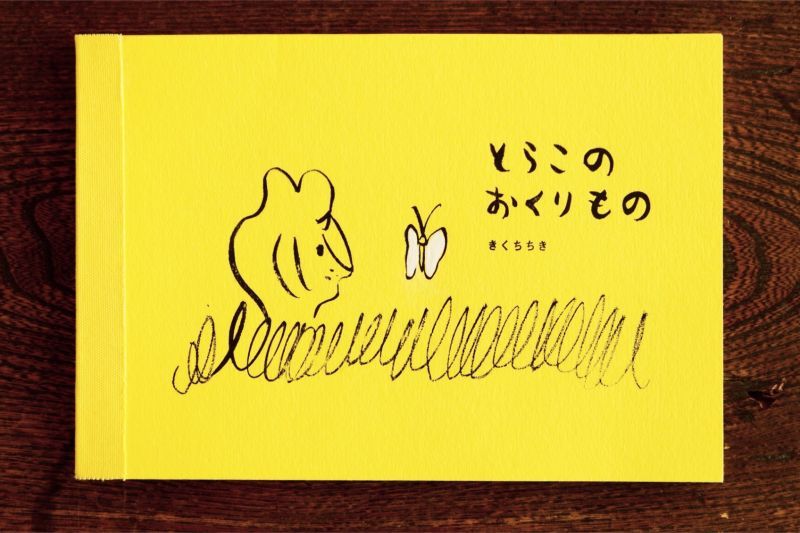 とらこの
おくりもの
きくちちき